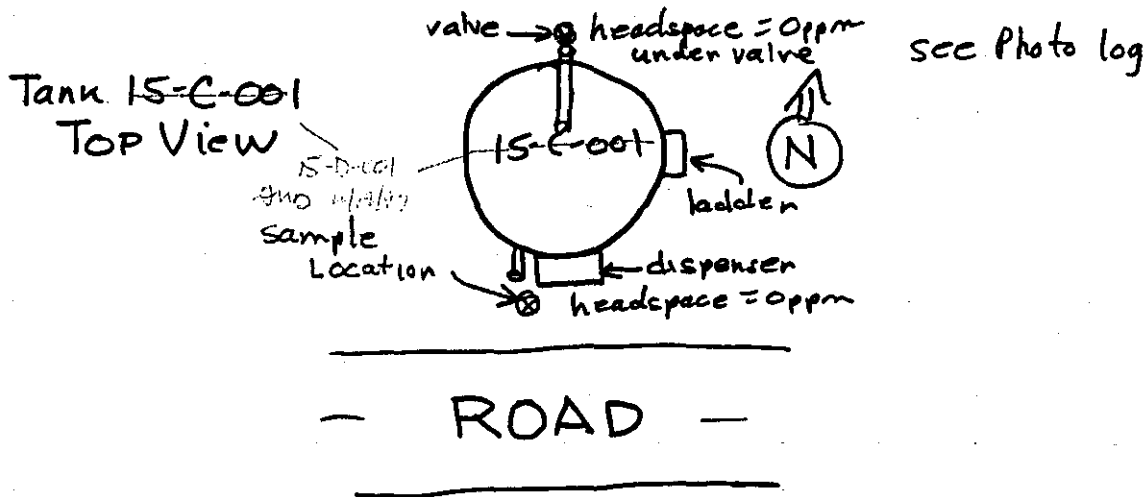 valve headspace = 0ppm
under valve
see Photo log
Tank 15-C-001
Top View
15-C-001
N
15-D-001
ladder
sample
Location
dispenser
headspace = 0ppm
- ROAD -